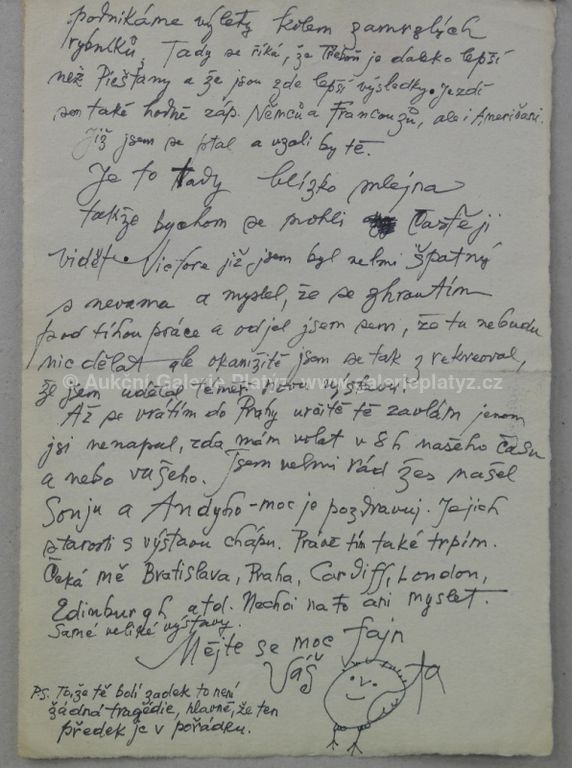 podnikáme výlety kolem zamrzlých
rybníků. Tady se říká, že Třeboň je daleko lepší
než Piešťany a že jsou zde lepší výsledky. Jezdí
sem také hodně záp. Němců a Francouzů, ale i Američani.
Již jsem se ptal a vzali by tě.
Je to tady blízko mlejna
takže bychom se mohli častěji
vidět. Victore již jsem byl velmi špatný
s nervama a myslel, že se zhroutím
pod tíhou práce a odjel jsem sem, že tu nebudu
nic dělat ale okamžitě jsem se tak zrekreoval,
že jsem udělal téměř novou výstavu.
© Aukční Galerie Platýz - www.galerieplatyz.cz
Až se vrátím do Prahy určitě tě zavolám jenom
jsi nenapsal, zda mám volat v 8h našeho času
a nebo vašeho. Jsem velmi rád žes našel
Sonju a Andyho - moc je pozdravuj. Jejich
starosti s výstavou chápu. Právě tím také trpím.
Čeká mě Bratislava, Praha, Cardiff, London,
Edinburgh atd. Nechci na to ani myslet.
Samé veliké výstavy.
Mějte se moc fajn
Váš
PS. To, že tě bolí zadek to není
žádná tragédie, hlavně, že ten
předek je v pořádku.